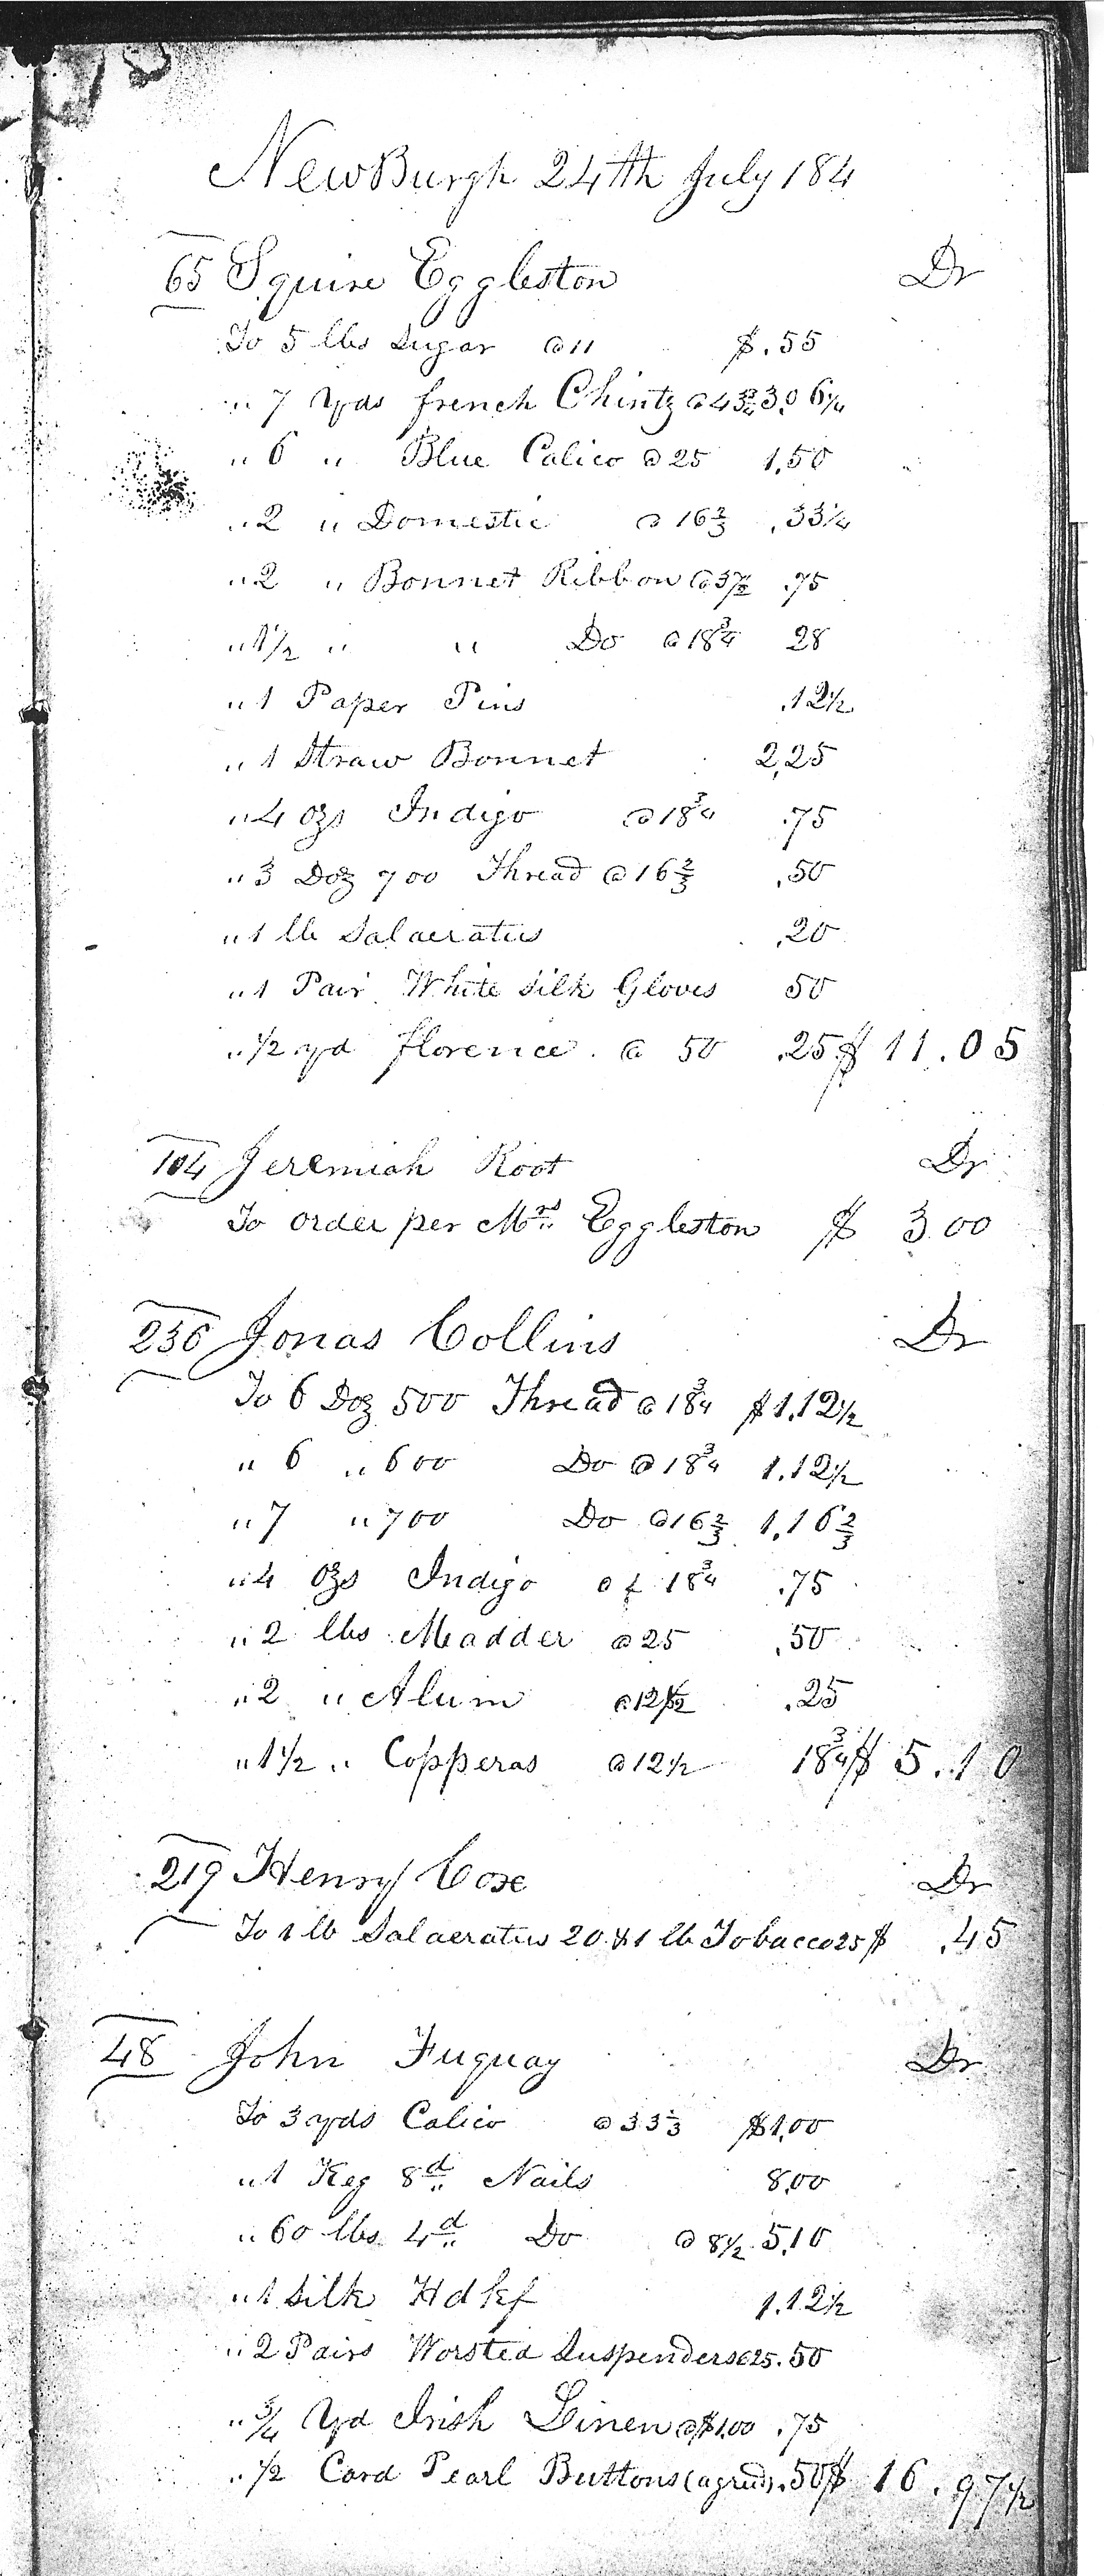 NewBurgh 24th July 184
65 Squire Eggleston Dr
To 5 lbs Sugar @ 11 $ .55
" 7 Yds french Chintz @ 43¾ 3.06¼
" 6 " Blue Calico @ 25 1,50
" 2 " Domestic @ 16⅔ .33¼
" 2 " Bonnet Ribbon @ 37½ .75
" 1½ " " Do @ 18¾ 28
" 1 Paper Pins .12½
" 1 Straw Bonnet 2,25
" 4 ozs Indigo @ 18¾ .75
" 3 Doz 700 Thread @ 16⅔ .50
" 1 lb Salaeratus .20
" 1 Pair White Silk Gloves 50
" ½ yd florence @ 50 .25 $ 11.05
104 Jeremiah Root Dr
To order per Mrs Eggleston $ 3.00
236 Jonas Collins Dr
To 6 Doz 500 Thread @ 18¾ $1.12½
" 6 " 600 Do @ 18¾ 1.12½
" 7 " 700 Do @ 16⅔ 1.16⅔
" 4 Ozs Indigo @ 18¾ .75
" 2 lbs Madder @ 25 .50
" 2 " Alum @ 12½ .25
" 1½ " Copperas @ 12½ 18¾ $ 5.10
219 Henry Cox Dr
To 1 lb Salaeratus 20 & 1 lb Tobacco 25 $ .45
48 John Fuquay Dr
To 3 yds Calico @ 33⅓ $1,00
" 1 Keg 8d Nails 8,00
" 60 lbs 4d Do @ 8½ 5,10
" 1 Silk Hdkf 1.12½
" 2 Pairs Worsted Suspenders @ 25 .50
" ¾ Yd Irish Linen @ $1.00 .75
" ½ Card Pearl Buttons (agrd) .50 $ 16.97½